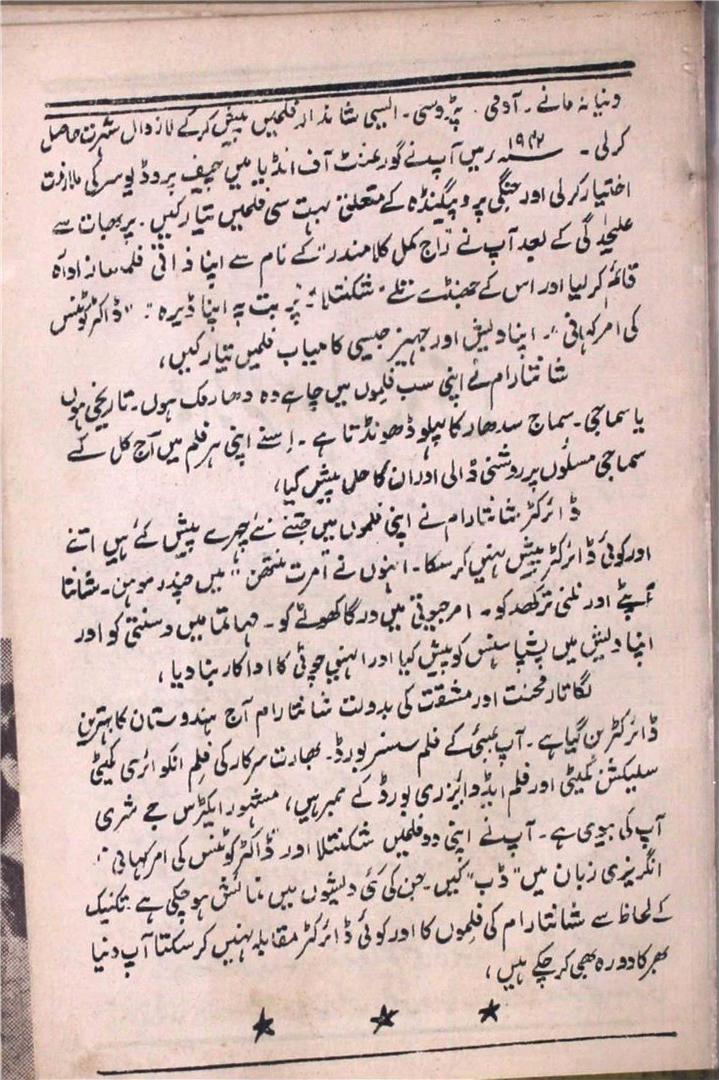 دنیا نہ مانے۔ آدمی۔ پڑوسی۔ ایسی شاندار فلمیں پیش کر کے لازوال شہرت حاصل
کر لی۔ ۱۹۴۲ء میں آپ نے گورنمنٹ آف انڈیا میں چیف پروڈیوسر کی ملازمت
اختیار کرلی اور جنگی پروپیگنڈہ کے متعلق بہت سی فلمیں تیار کیں۔ پربھات سے
علیحدگی کے بعد آپ نے "راج کمل کلا مندر" کے نام سے اپنا ذاتی فلمساز ادارہ
قائم کر لیا اور اس کے جھنڈے تلے "شکنتلا"۔ "پربت پہ اپنا ڈیرہ"۔ "ڈاکٹر کوٹنس
کی امر کہانی"۔ اپنا دیش اور جہیز جیسی کامیاب فلمیں تیار کیں،
شانتارام نے اپنی سب فلموں میں چاہے وہ دھارمک ہوں۔ تاریخی ہوں
یا سماجی۔ سماج سدھار کا پہلو ڈھونڈتا ہے۔ اسنے اپنی ہر فلم میں آج کل کے
سماجی مسئلوں پر روشنی ڈالی اور ان کا حل پیش کیا،
ڈائرکٹر شانتارام نے اپنی فلموں میں جتنے نئے چہرے پیش کئے ہیں اتنے
اور کوئی ڈائرکٹر پیش نہیں کر سکا۔ انہوں نے "امرت منتھن" میں چندر موہن۔ شانتا
آپٹے اور نلنی ترکھد کو۔ امر جیوتی میں درگا کھوٹے کو۔ مہاتما میں وسنتی کو اور
اپنا دیش میں پشپا ہنس کو پیش کیا اور انہیں چوٹی کا اداکار بنا دیا،
لگاتار محنت اور مشقت کی بدولت شانتارام آج ہندوستان کا بہترین
ڈائرکٹر بن گیا ہے۔ آپ بمبئی کے فلم سنسر بورڈ۔ بھارت سرکار کی فلم انکوائری کمیٹی
سلیکشن کمیٹی اور فلم ایڈوائیزری بورڈ کے ممبر ہیں، مشہور ایکٹرس جے شری
آپ کی بیوی ہے۔ آپ نے اپنی دو فلمیں شکنتلا اور "ڈاکٹر کوٹنس کی امر کہانی"
انگریزی زبان میں "ڈب" کیں۔ جن کی کئی دیشوں میں نمائش ہو چکی ہے۔ تکنیک
کے لحاظ سے شانتارام کی فلموں کا اور کوئی ڈائرکٹر مقابلہ نہیں کر سکتا آپ دنیا
بھر کا دورہ بھی کر چکے ہیں،